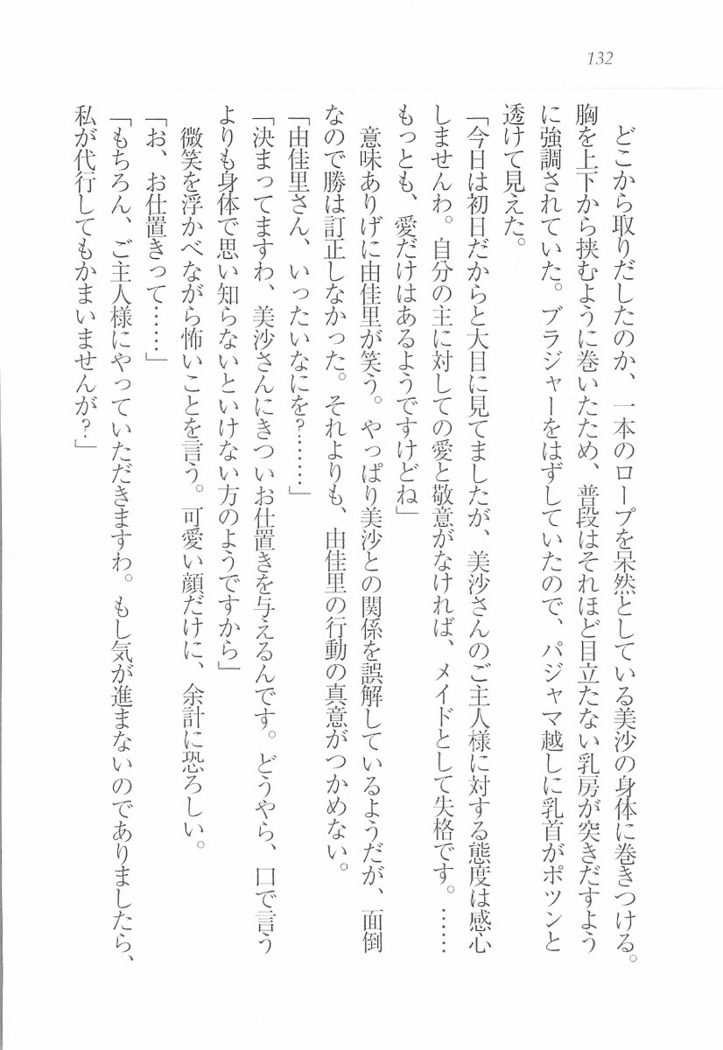 132
どこから取りだしたのか、一本のロープを呆然としている美沙の身体に巻きつける。
胸を上下から挟むように巻いたため、普段はそれほど目立たない乳房が突きだすよう
に強調されていた。ブラジャーをはずしていたので、パジャマ越しに乳首がポツンと
透けて見えた。
「今日は初日だからと大目に見てましたが、美沙さんのご主人様に対する態度は感心
しませんわ。自分の主に対しての愛と敬意がなければ、メイドとして失格です。……
もっとも、愛だけはあるようですけどね」
意味ありげに由佳里が笑う。やっぱり美沙との関係を誤解しているようだが、面倒
なので勝は訂正しなかった。それよりも、由佳里の行動の真意がつかめない。
「由佳里さん、いったいなにを?……」
「決まってますわ、美沙さんにきついお仕置きを与えるんです。どうやら、口で言う
よりも身体で思い知らないといけない方のようですから」
微笑を浮かべながら怖いことを言う。可愛い顔だけに、余計に恐ろしい。
「お、お仕置きって……」
「もちろん、ご主人様にやっていただきますわ。もし気が進まないのでありましたら、
私が代行してもかまいませんが?」